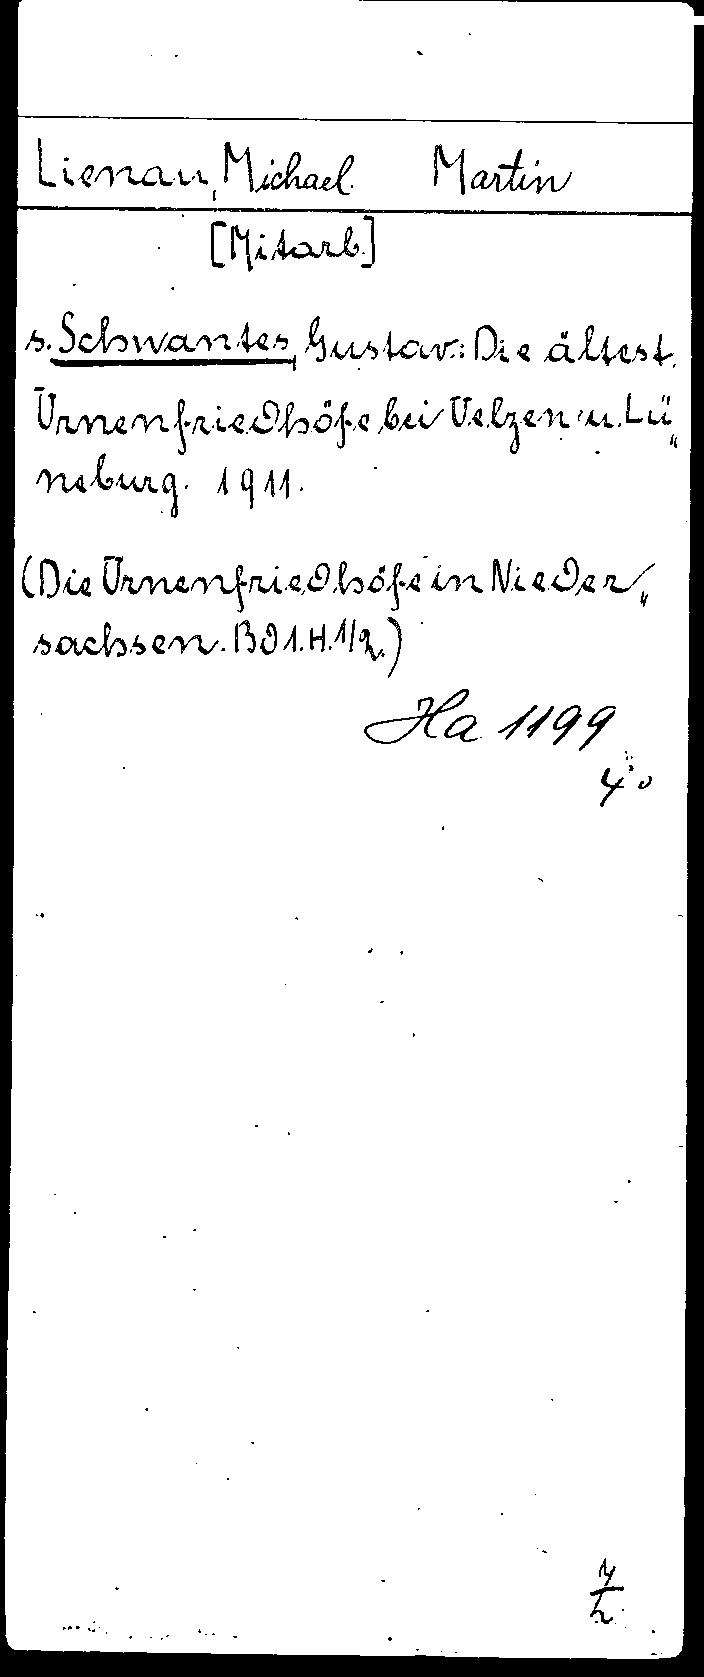 Lienau, Michael Martin
[Mitarb.]
s. Schwantes, Gustav: Die ältest.
Urnenfriedhöfe bei Uelzen u. Lü„
neburg. 1911.
(Die Urnenfriedhöfe in Nieder„
sachsen. Bd 1. H. 1/2.)
Ha 1199
4°